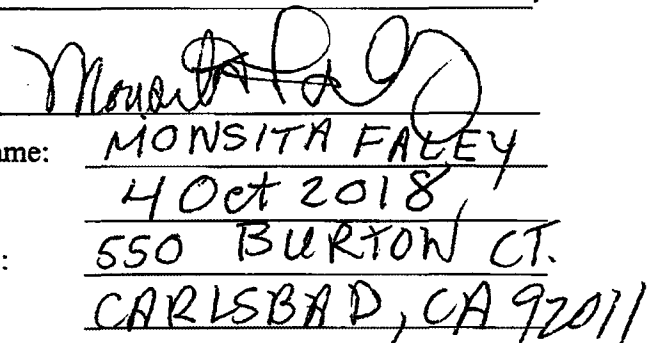 Monsita Faley
ame: MONSITA FALEY
4 Oct 2018
: 550 BURTON CT.
CARLSBAD, CA 92011